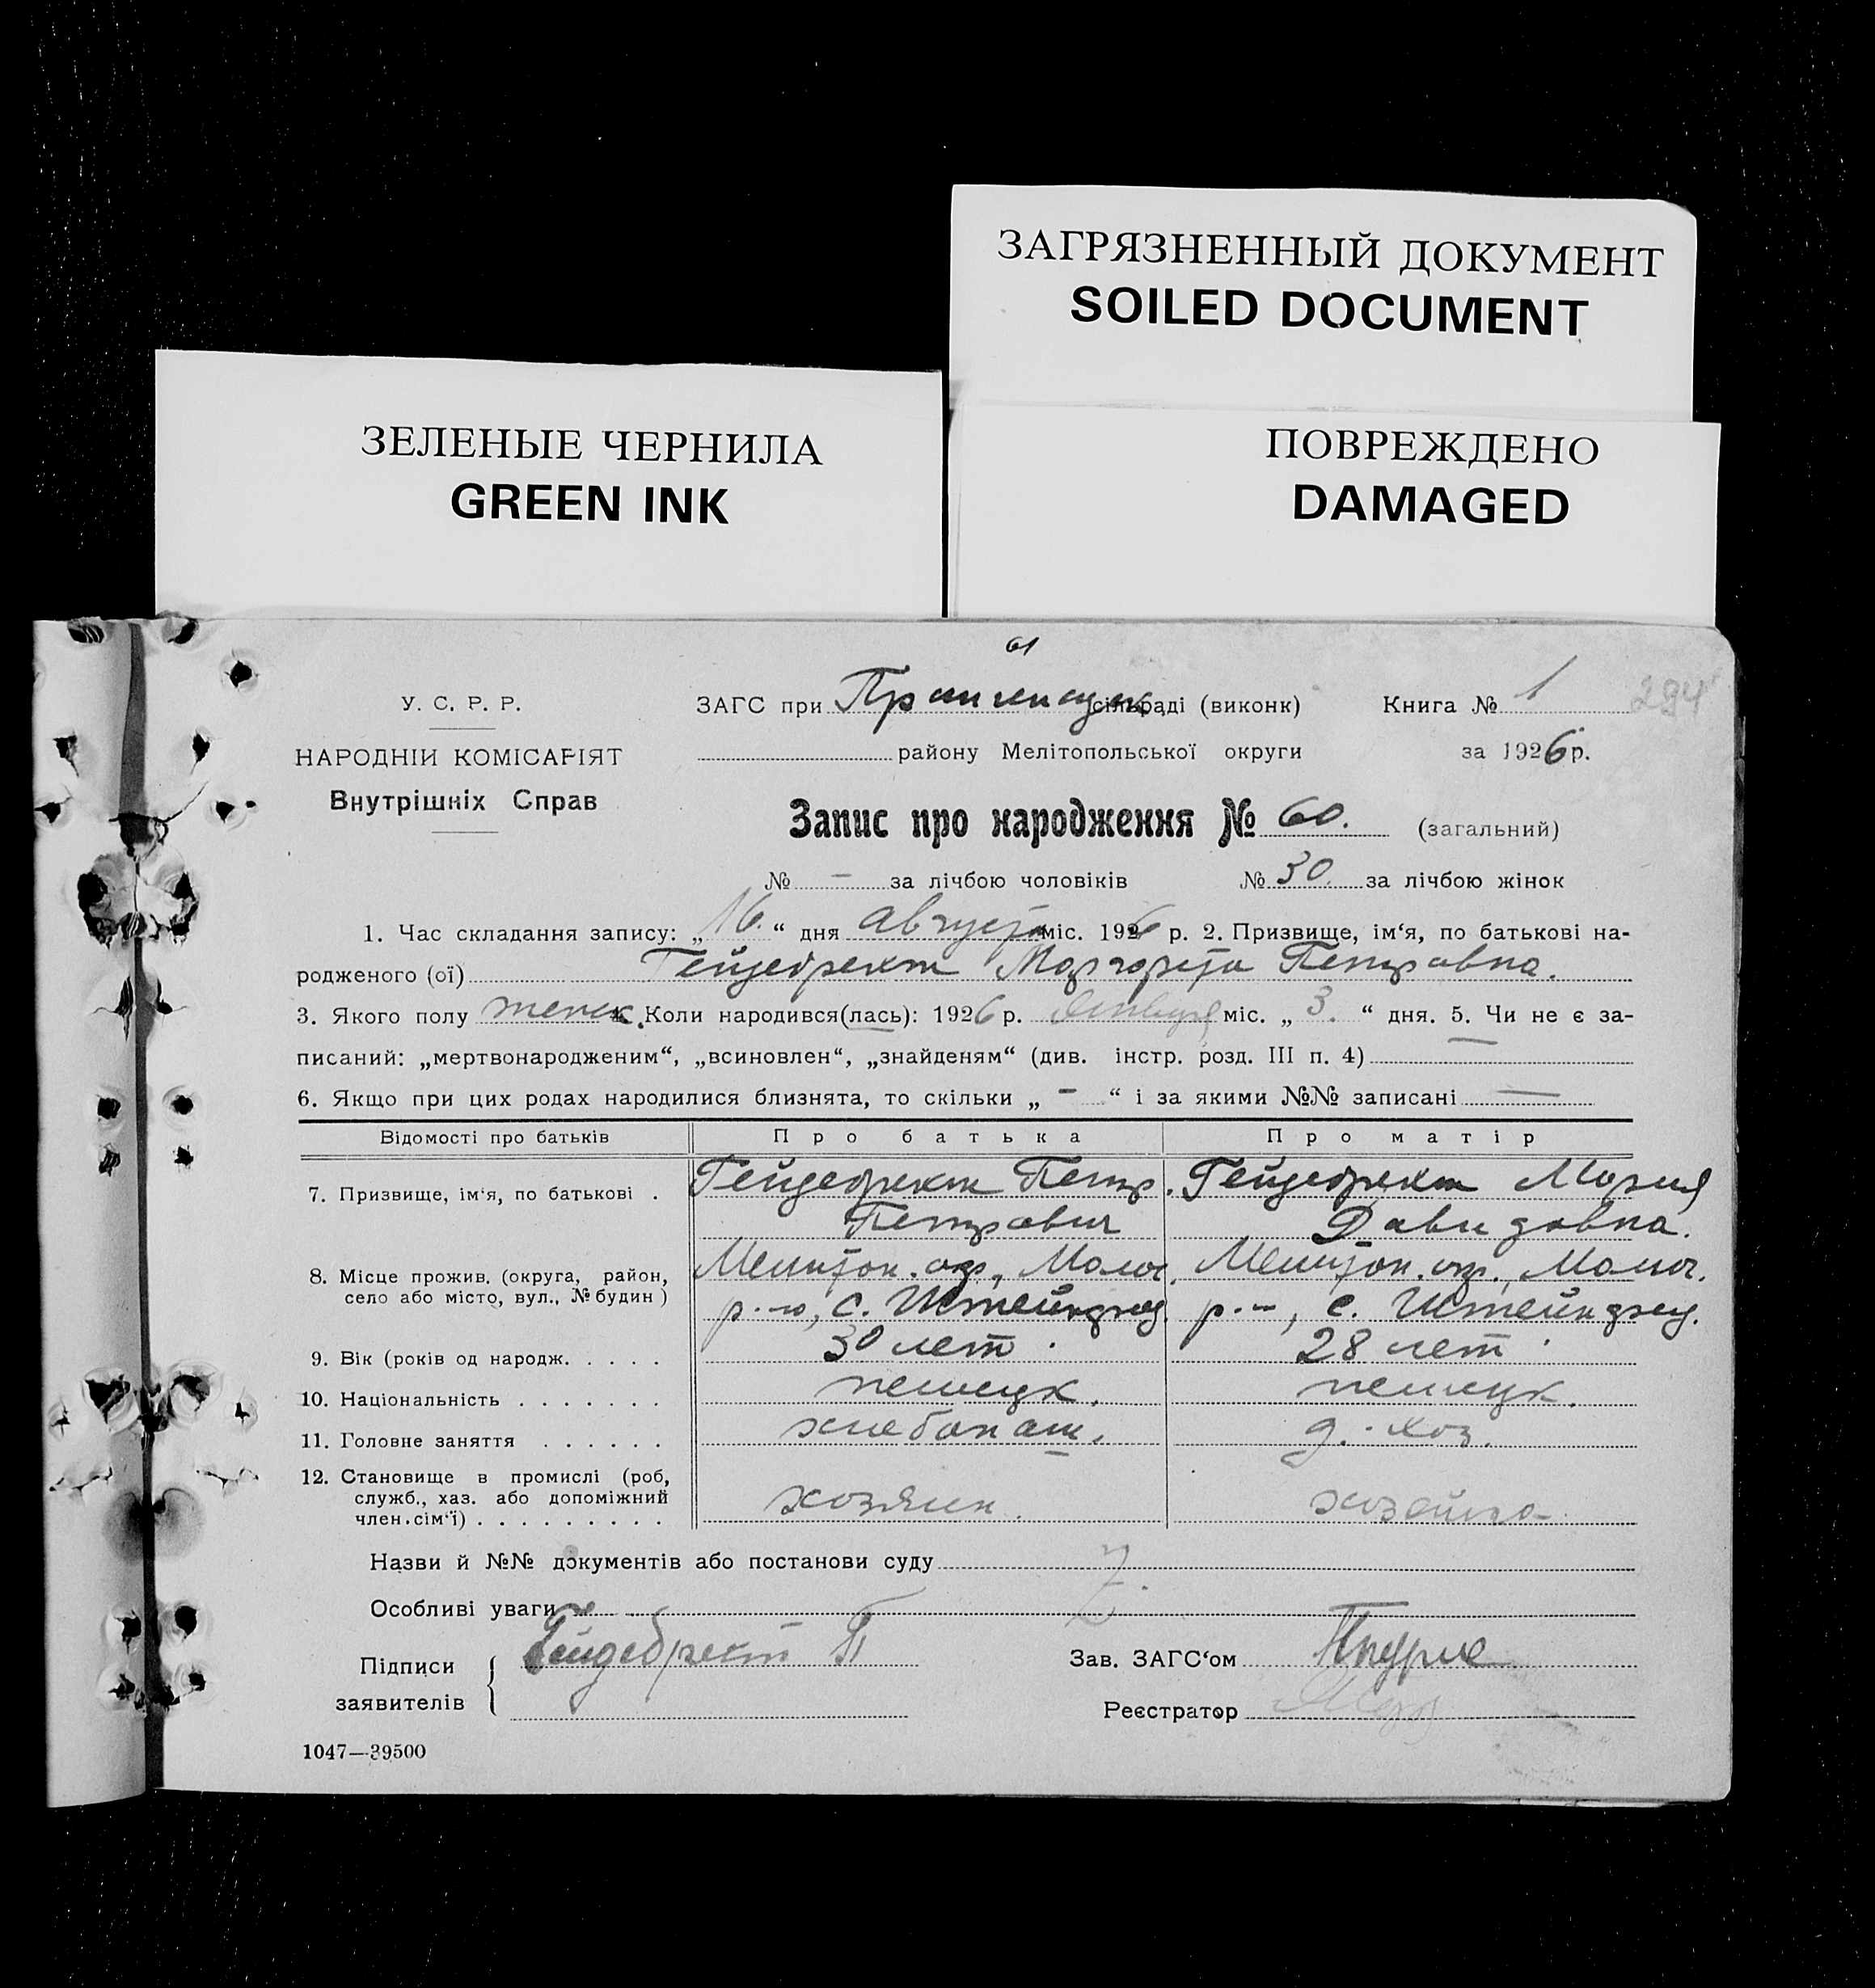 ЗАГРЯЗНЕННЫЙ ДОКУМЕНТ
SOILED DOCUMENT
ЗЕЛЕНЫЕ ЧЕРНИЛА
GREEN INK
ПОВРЕЖДЕНО
DAMAGED
61
У. С. Р. Р.
НАРОДНІЙ КОМІСАРІЯТ
Внутрішніх Справ
ЗАГС при сільраді (виконк) Книга № 1 294
району Мелітопольської округи за 1926 р.
Запис про народження № 60. (загальний)
№ — за лічбою чоловіків № 30. за лічбою жінок
1. Час складання запису: „16.“ дня августа міс. 1926 р. 2. Призвище, ім‘я, по батькові на-
родженого (ої) Гейдебрехт Маргарита Петровна.
3. Якого полу женск. 4. Коли народився(лась): 1926 р. января міс. „3.“ дня. 5. Чи не є за-
писаний: „мертвонародженим“, „всиновлен“, „знайденям“ (див. інстр. розд. III п. 4) —
6. Якщо при цих родах народилися близнята, то скільки „ — “ і за якими №№ записані —
Відомості про батьків Про батька Про матір
7. Призвище, ім‘я, по батькові . Гейдебрехт Петр Петрович Гейдебрехт Мария Давидовна.
8. Місце прожив. (округа, район, Мелитоп. окр., Молоч. Мелитоп. окр., Молоч.
село або місто, вул., № будин) р-н, с. Штейнфельд р-н, с. Штейнфельд.
9. Вік (років од народж. . . . . 30 лет 28 лет
10. Національність . . . . . . . немецк. немецк.
11. Головне заняття . . . . . . хлебопаш. д. хоз.
12. Становище в промислі (роб,
служб., хаз. або допоміжний хозяин. хозяйка
член.сім‘ї) . . . . . . . . .
Назви й №№ документів або постанови суду
Особливі уваги
Підписи Гейдебрехт П Зав. ЗАГС‘ом
заявителів Реєстратор
1047—39500